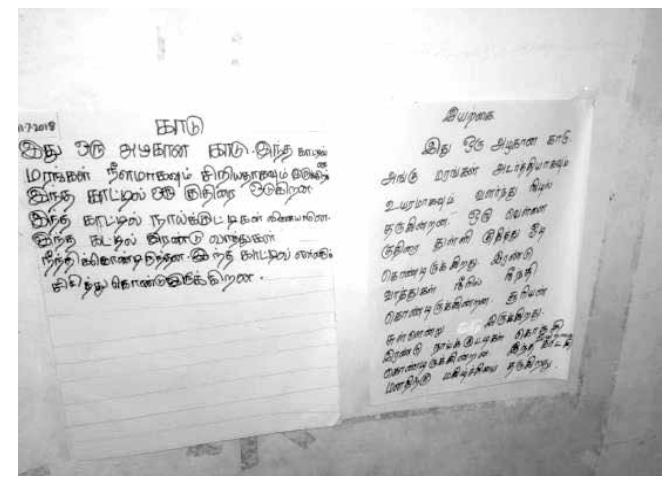 7-2018
காடு
இது ஒரு அழகான காடு. இந்த காட்டில்
மரங்கள் நீளமாகவும் சிறியதாகவும்
இந்த காட்டில் ஒரு குதிரை ஓடுகிறன
இந்த காட்டில் நாய்க்குட்டிகள்
இந்த கட்டில் இரண்டு வாத்துகள்
நீந்திக்கொண்டிருந்தன. இந்த காட்டில்
சிரித்து கொண்டு இருக்கிறன.
இயற்கை
இது ஒரு அழகான காடு.
அங்கு மரங்கள் அடர்த்தியாகவும்
உயரமாகவும் வளர்ந்து நிழல்
தருகின்றன. ஒரு வெள்ளை
குதிரை துள்ளி குதித்து ஓடி
கொண்டிருக்கிறது. இரண்டு
வாத்துகள் நீரில் நீந்தி
கொண்டிருக்கின்றன. சூரியன்
சுள்ளென்று இருக்கிறது.
இரண்டு நாய்க்குட்டிகள் கொஞ்சி
கொண்டிருக்கின்றன. இந்த காட்சி
மனதிற்கு மகிழ்ச்சியை தருகிறது.